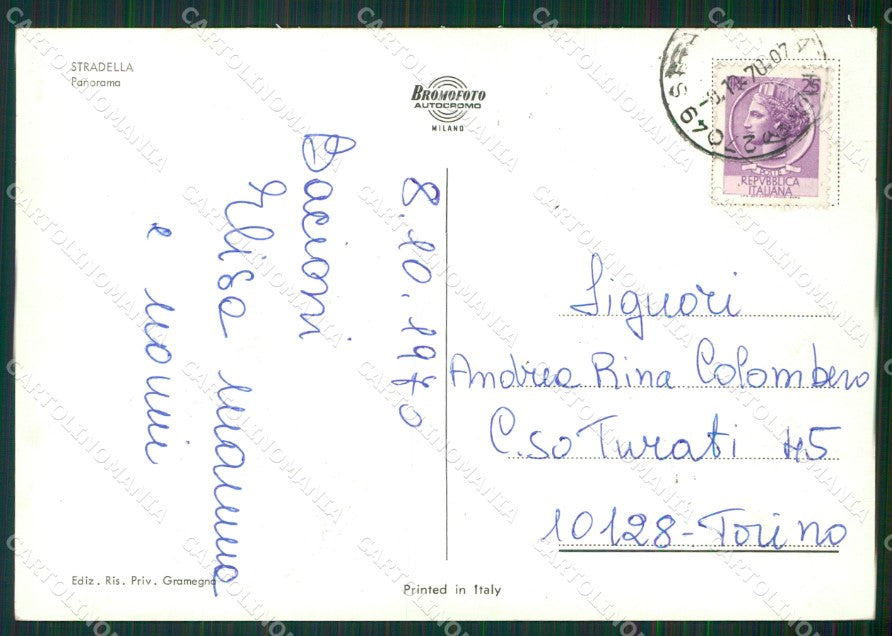 STRADELLA
Panorama
BROMOFOTO
AUTOCROMO
MILANO
25
POSTE
REPVBBLICA
ITALIANA
8.10.1970
Bacioni
Elisa mamma
e nonni
Signori
Andrea Rina Colombero
C.so Turati 45
10128-Torino
Ediz. Ris. Priv. Gramegna
Printed in Italy
CARTOLINOMANIA